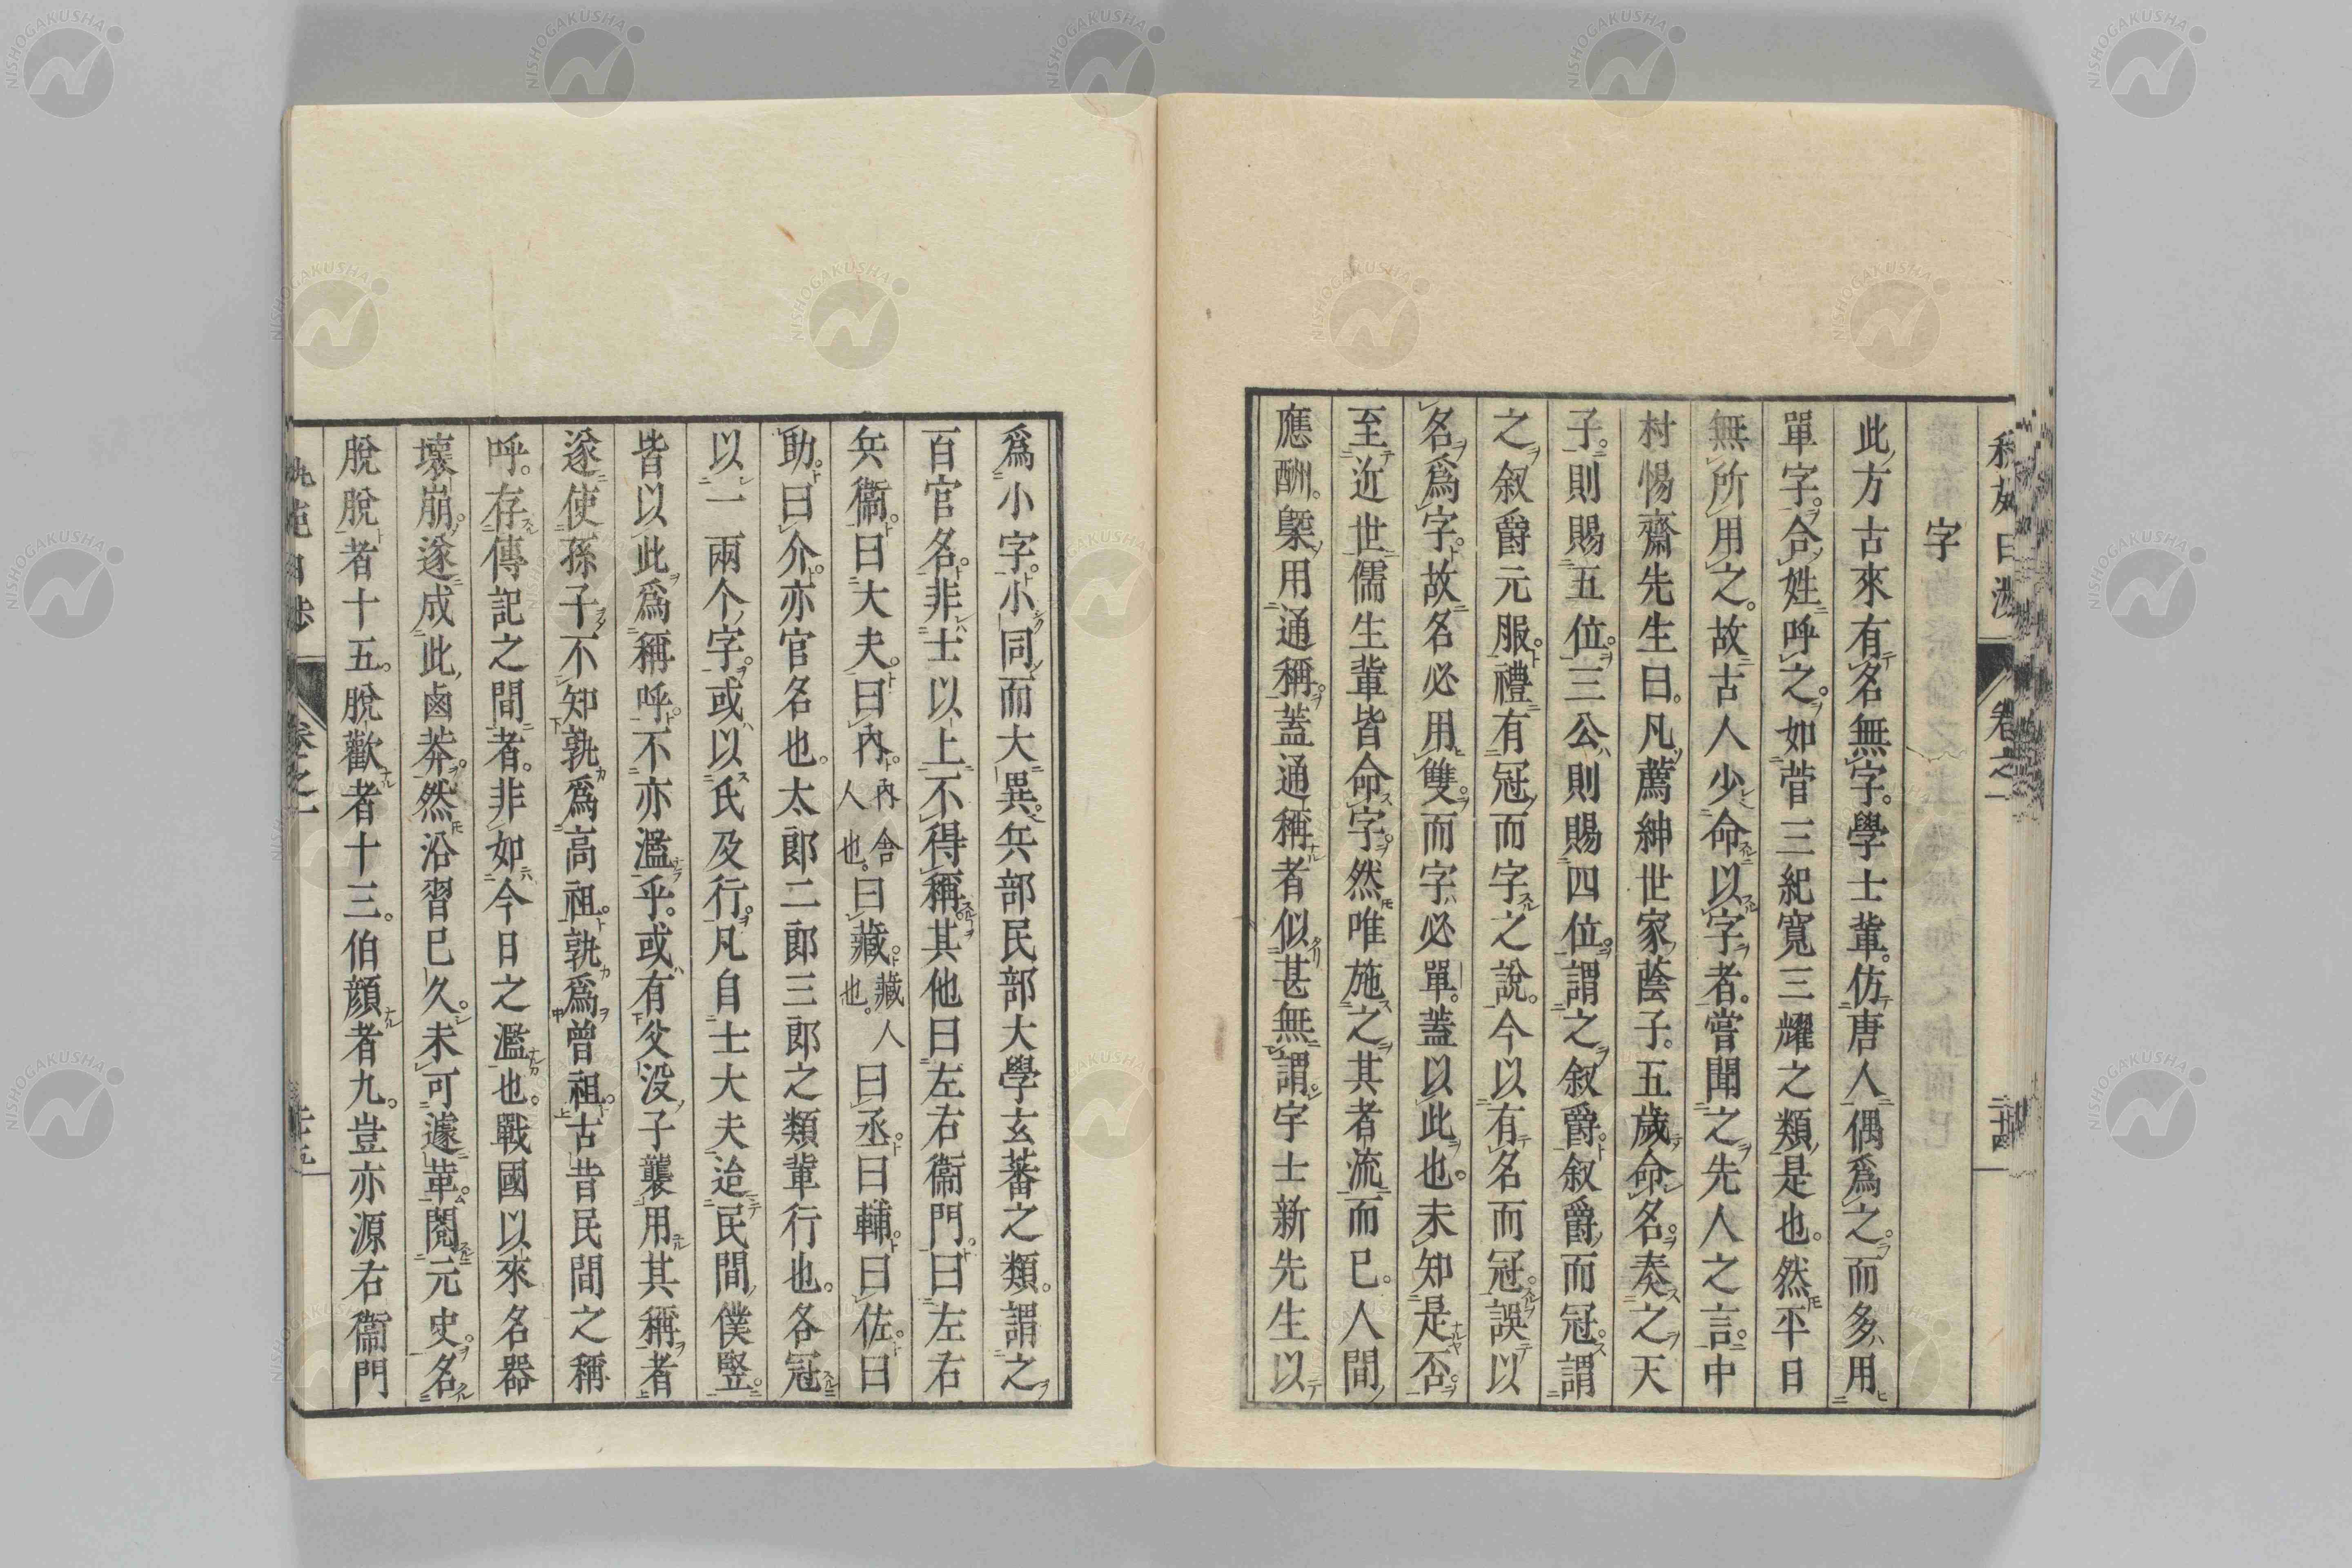 字
此方古來有名無字。學士輩。仿唐人偶爲之。而多用
單字。合姓呼之。如菅三紀寬三耀之類是也。然平日
無所用之。故古人少命以字者。嘗聞之先人之言。中
村惕齋先生曰。凡薦紳世家蔭子。五歲命名。奏之天
子。則賜五位。三公則賜四位。謂之叙爵。叙爵而冠。謂
之叙爵元服。禮有冠而字之說。今以有名而冠。誤以
名爲字。故名必用雙。而字必單。蓋以此也。未知是否。
至近世儒生輩皆命字。然唯施之其者流而已。人間
應酬。槩用通稱。蓋通稱者似甚無謂。宇士新先生以
爲小字。小同而大異。兵部民部大學玄蕃之類。謂之
百官名。非士以上不得稱。其他曰左右衞門。曰左右
兵衞。曰大夫。曰內。內舍人也。曰藏。藏人也。曰丞。曰輔。曰佐。曰
助。曰介。亦官名也。太郎二郎三郎之類輩行也。各冠
以一兩个字。或以氏及行。凡自士大夫迨民間僕豎。
皆以此爲稱呼。不亦濫乎。或有父没子襲用其稱者
遂使孫子不知孰爲高祖。孰爲曾祖。古昔民間之稱
呼。存傳記之間者。非如今日之濫也。戰國以來名器
壞崩。遂成此鹵莽。然沿習已久。未可遽革。閱元史。名
脫脫者十五。脫歡者十三。伯顏者九。豈亦源右衞門
卷之一